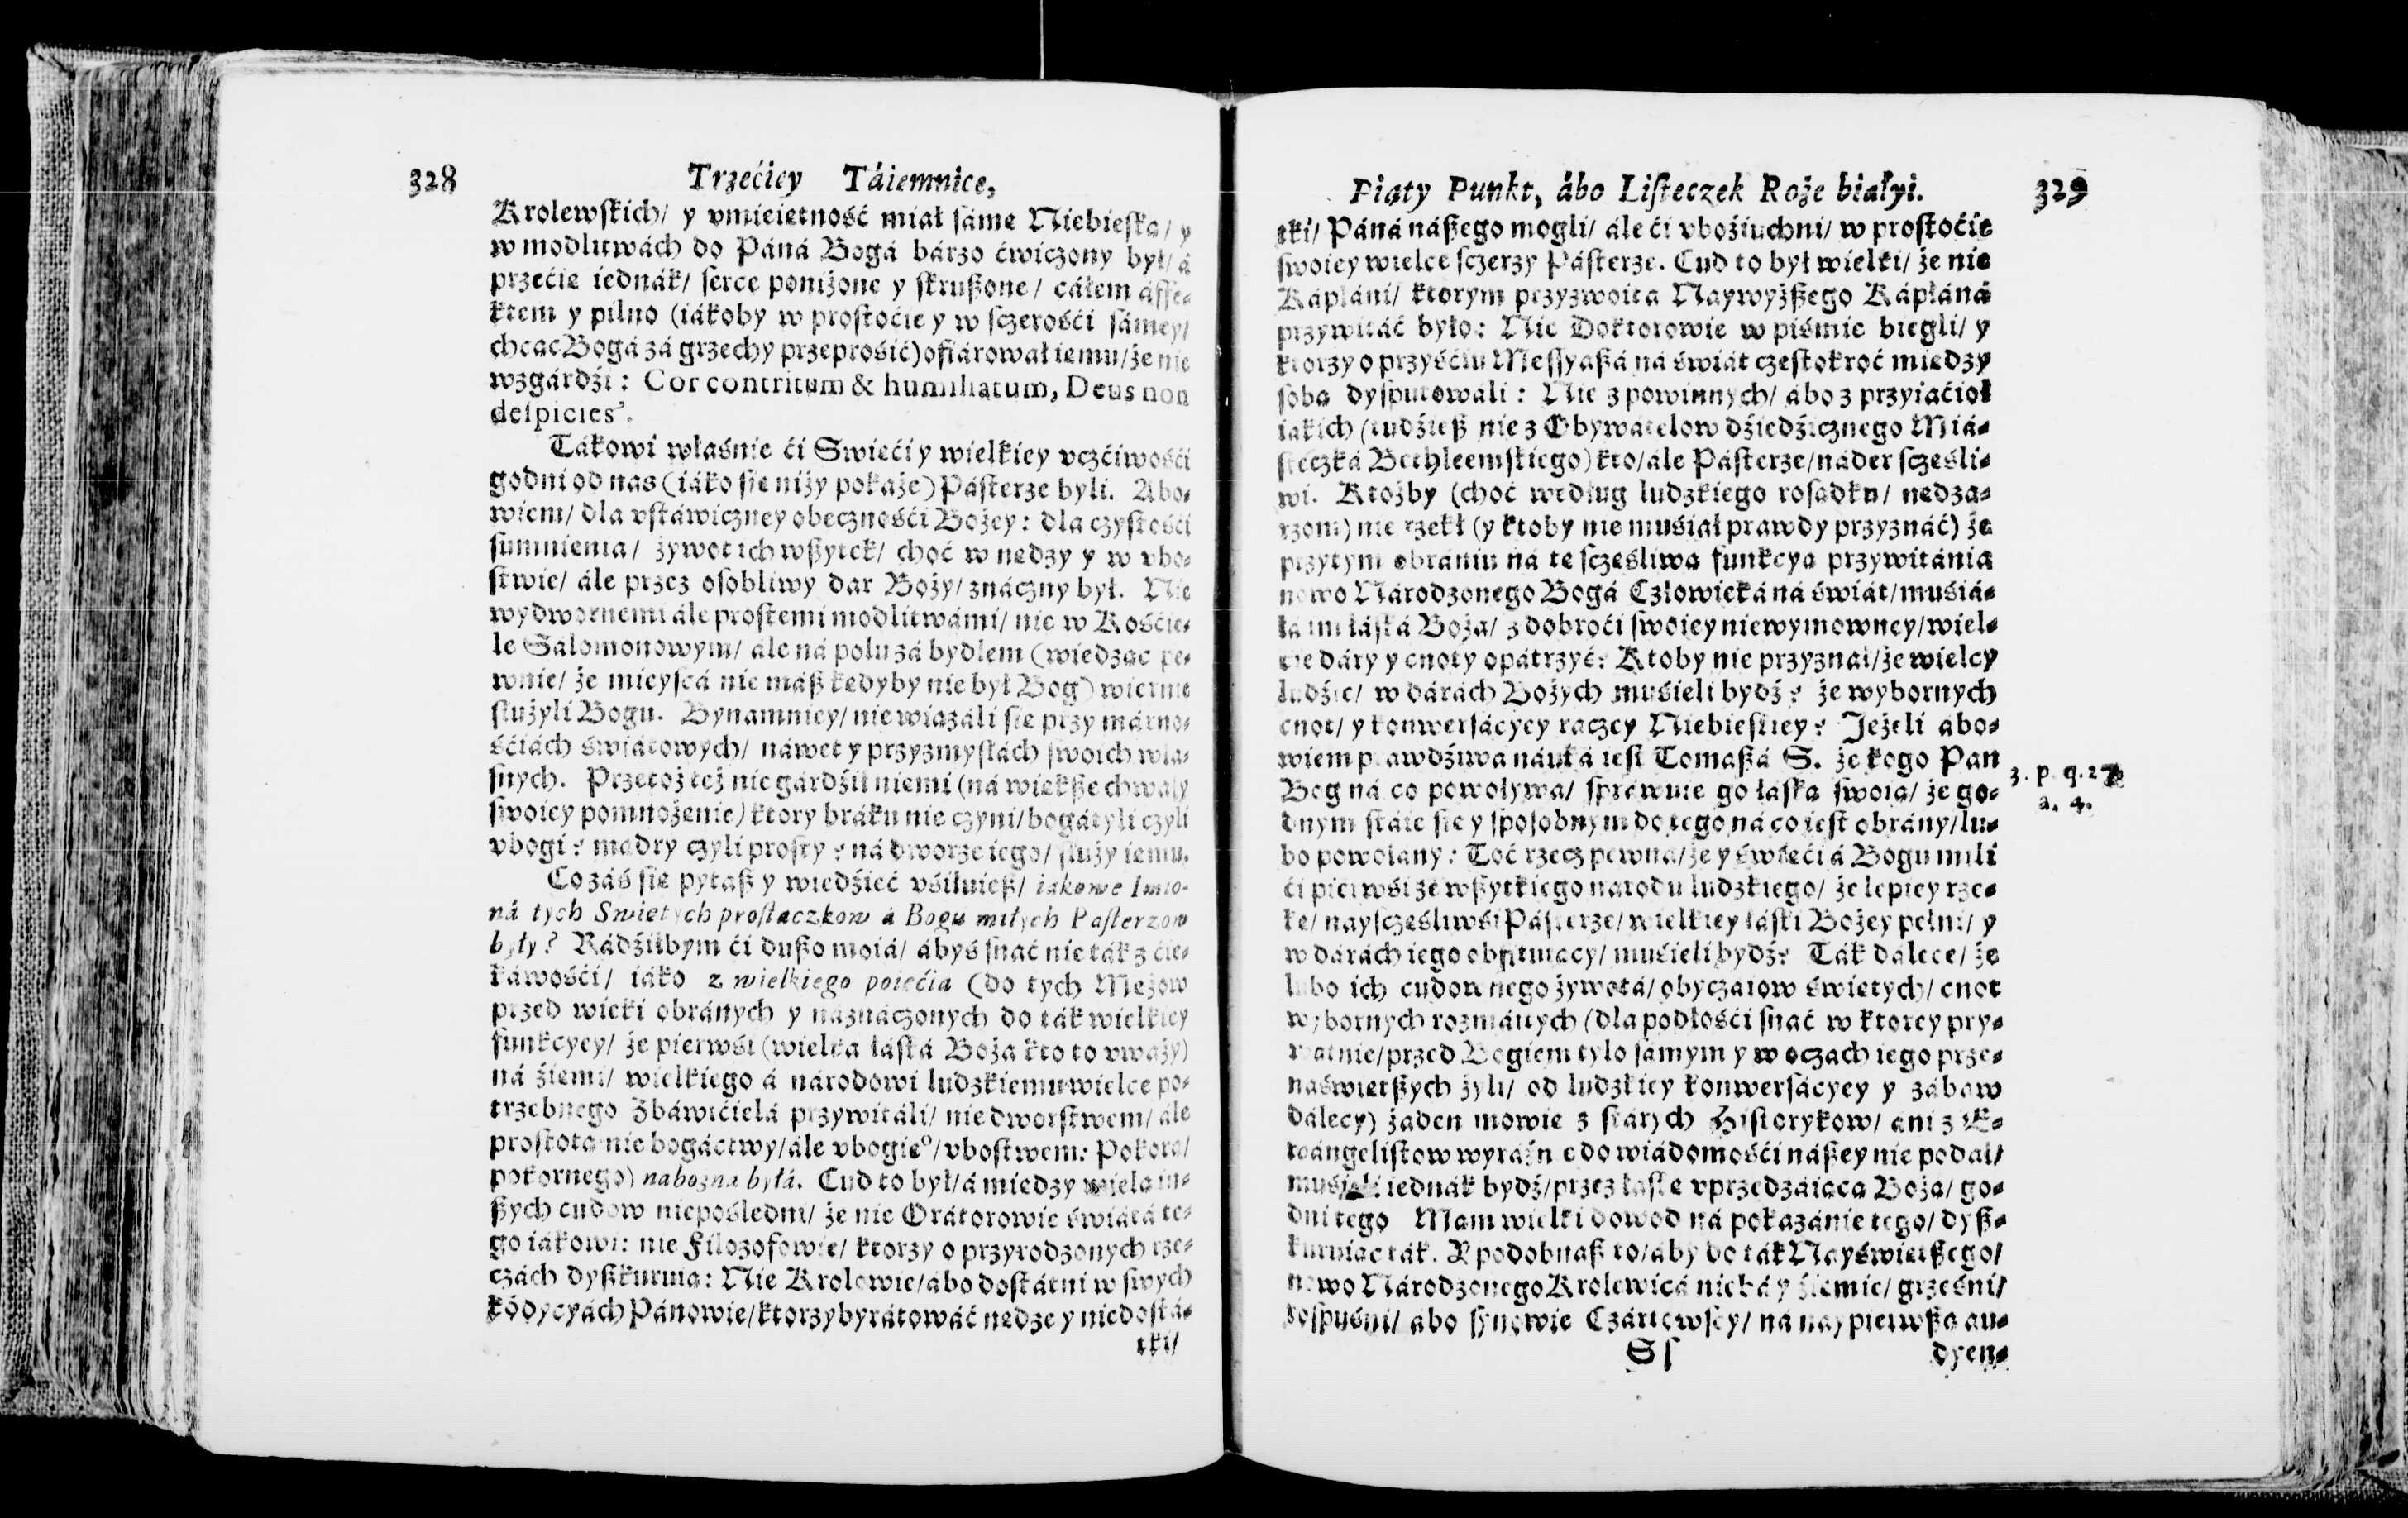 328 Trzećiey Táiemnice,
Krolewſkich/ y vmieiętność miał ſáme Niebieſką/ y
w modlitwách do Páná Bogá bárzo ćwiczony był/ á
przećie iednák/ ſerce poniżone y ſkrußone/ cáłem áffe-
ktem y pilno (iákoby w proſtoćie y w ſczerośći ſámey/
chcąc Bogá zá grzechy przeprośić) ofiárował iemu/ że nie
wzgárdźi: Cor contritum & humiliatum, Deus non
deſpicies.
Tákowi właśnie ći Swięći y wielkiey vczćiwośći
godni od nas (iáko ſię niży pokaże) Páſterze byli. Abo-
wiem/ dla vſtáwiczney obecznośći Bożey: dla czyſtośći
ſumnienia/ żywot ich wßytek/ choć w nędzy y w vbo-
ſtwie/ ále przez oſobliwy dar Boży/ znáczny był. Nie
wydwornemi ále proſtemi modlitwámi/ nie w Kośćie-
le Salomonowym/ ale ná polu zá bydłem (wiedząc pe-
wnie/ że mieyſcá nie máß kędyby nie był Bog) wiernie
ſłużyli Bogu. Bynamniey/ nie wiązáli ſię przy márno-
śćiách świátowych/ náwet y przy zmyſłách ſwoich wła-
ſnych. Przetoż też nie gárdźił niemi (ná więkße chwały
ſwoiey pomnożenie) ktory bráku nie czyni/ bogátyli czyli
vbogi? mądry czyli proſty? ná dworze iego/ ſłuży iemu.
Co záś ſię pytaß y wiedźieć vśiłuieß/ iakowe Imio-
ná tych Swiętych proſtaczkow á Bogu miłych Paſterzow
były? Rádźiłbym ći dußo moiá/ ábyś ſnać nie ták z ćie-
káwośći/ iáko z wielkiego poięćia (do tych Mężow
przed wieki obránych y náznáczonych do ták wielkiey
funkcyey/ że pierwśi (wielka łáſká Boża kto to vważy)
ná źiemi/ wielkiego á národowi ludzkiemu wielce po-
trzebnego Zbáwićielá przywitáli/ nie dworſtwem/ ále
proſtotą nie bogáctwy/ ále vbogie°/ vboſtwem: Pokorą/
pokornego) nabożna byłá. Cud to był/ á miedzy wielą in-
ßych cudow niepośledni/ że nie Orátorowie świátá te-
go iákowi: nie Filozofowie/ ktorzy o przyrodzonych rze-
czách dyßkuruią: Nie Krolowie/ ábo doſtátni w ſwych
kōdycyách Pánowie/ ktorzyby rátowáć nędzę y niedoſtá-
tki/
Piąty Punkt, ábo Liſteczek Roże białyi. 329
tki/ Páná náßego mogli/ ále ći vbożiuchni/ w proſtoćie
ſwoiey wielce ſczerzy Páſterze. Cud to był wielki/ że nie
Kápłáni/ ktorym przyzwoita Naywyżßego Kápłáná
przywitáć było: Nie Doktorowie w piśmie biegli/ y
ktorzy o przyśćiu Meſſyaßá ná świát częſtokroć miedzy
ſobą dyſputowáli: Nie z powinnych/ ábo z przyiaćioł
iákich (tudźieß nie z Obywatelow dźiedźicznego Miá-
ſteczká Bethleemſkiego) kto/ ále Páſterze/ náder ſczęśli-
wi. Ktożby (choć według ludzkiego roſądku/ nędza-
rzom) nie rzekł (y ktoby nie muśiał prawdy przyznáć) że
przytym obrániu ná tę ſczęśliwą funkcyą przywitánia
nowo Národzonego Bogá Człowieká ná świát/ muśiá-
łá im łáſká Boża/ z dobroći ſwoiey niewymowney/ wiel-
kie dáry y cnoty opátrzyć: Ktoby nie przyznał/ że wielcy
ludźie/ w dárách Bożych muśieli bydź? że wybornych
cnot/ y konwerſácyey raczey Niebieſkiey? Jeżeli ábo-
wiem prawdźiwa náuká ieſt Tomaßá S. że kogo Pan
Bog ná co powoływa/ ſpráwuie go łáſką ſwoią/ że go-
dnym ſtáie ſię y ſpoſobnym do tego ná co ieſt obrány/ lu-
bo powołány: Toć rzecz pewna/ że y święći á Bogu mili
ći pierwśi ze wßytkiego narodu ludzkiego/ że lepiey rze-
kę/ nayſczęśliwśi Páſterze/ wielkiey łáſki Bożey pełni/ y
w dárách iego obfituiący/ muśieli bydź? Ták dálece/ że
lubo ich cudownego żywotá/ obyczáiow świętych/ cnot
wybornych rozmáitych (dla podłośći ſnać w ktorey pry-
watnie/ przed Bogiem tylo ſámym y w oczách iego prze-
naświętßych żyli/ od ludzkiey konwerſácyey y zábaw
dálecy) żaden mowię z ſtárych Hiſtorykow/ áni z E-
wángeliſtow wyráźnie do wiádomośći náßey nie podał/
muśieli iednák bydź/ przez łáſkę vprzedzáiącą Bożą/ go-
dni tego Mam wielki dowod ná pokazánie tego/ dyß-
kuruiąc ták. Y podobnaß to/ áby do ták Nayświętßego/
nowo Národzonego Krolewicá niebá y źiemie/ grzeßni/
roſpuśni/ ábo ſynowie Czártowſcy/ ná naypierwßą au-
Sſ dyen-
3. p. q. 27
a. 4.